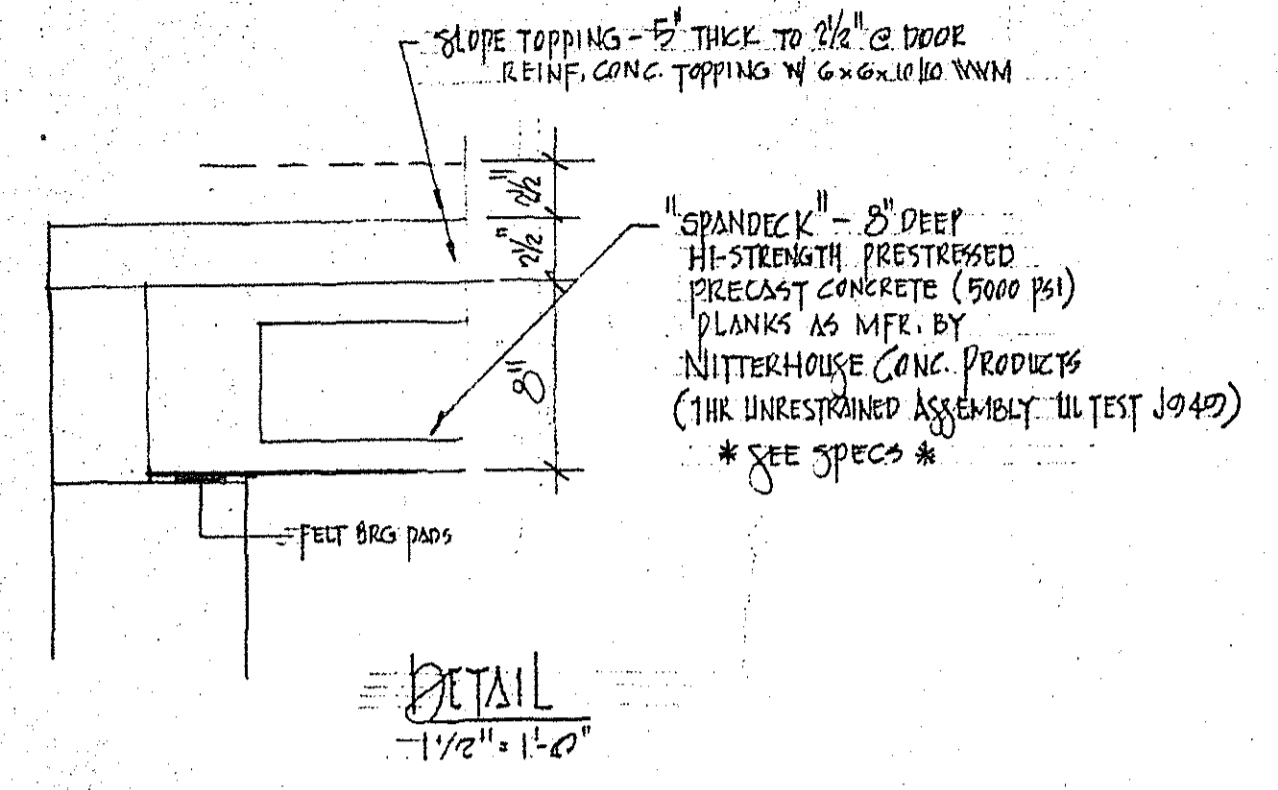 SLOPE TOPPING - 5" THICK TO 2 1/2" @ DOOR
REINF. CONC. TOPPING W/ 6x6x10/10 WWM
2 1/2"
2 1/2"
8"
"SPANDECK" - 8" DEEP
HI-STRENGTH PRESTRESSED
PRECAST CONCRETE (5000 PSI)
PLANKS AS MFR. BY
NITTERHOUSE CONC. PRODUCTS
(1HR UNRESTRAINED ASSEMBLY UL TEST J949)
* SEE SPECS *
FELT BRG PADS
DETAIL
1 1/2" = 1'-0"